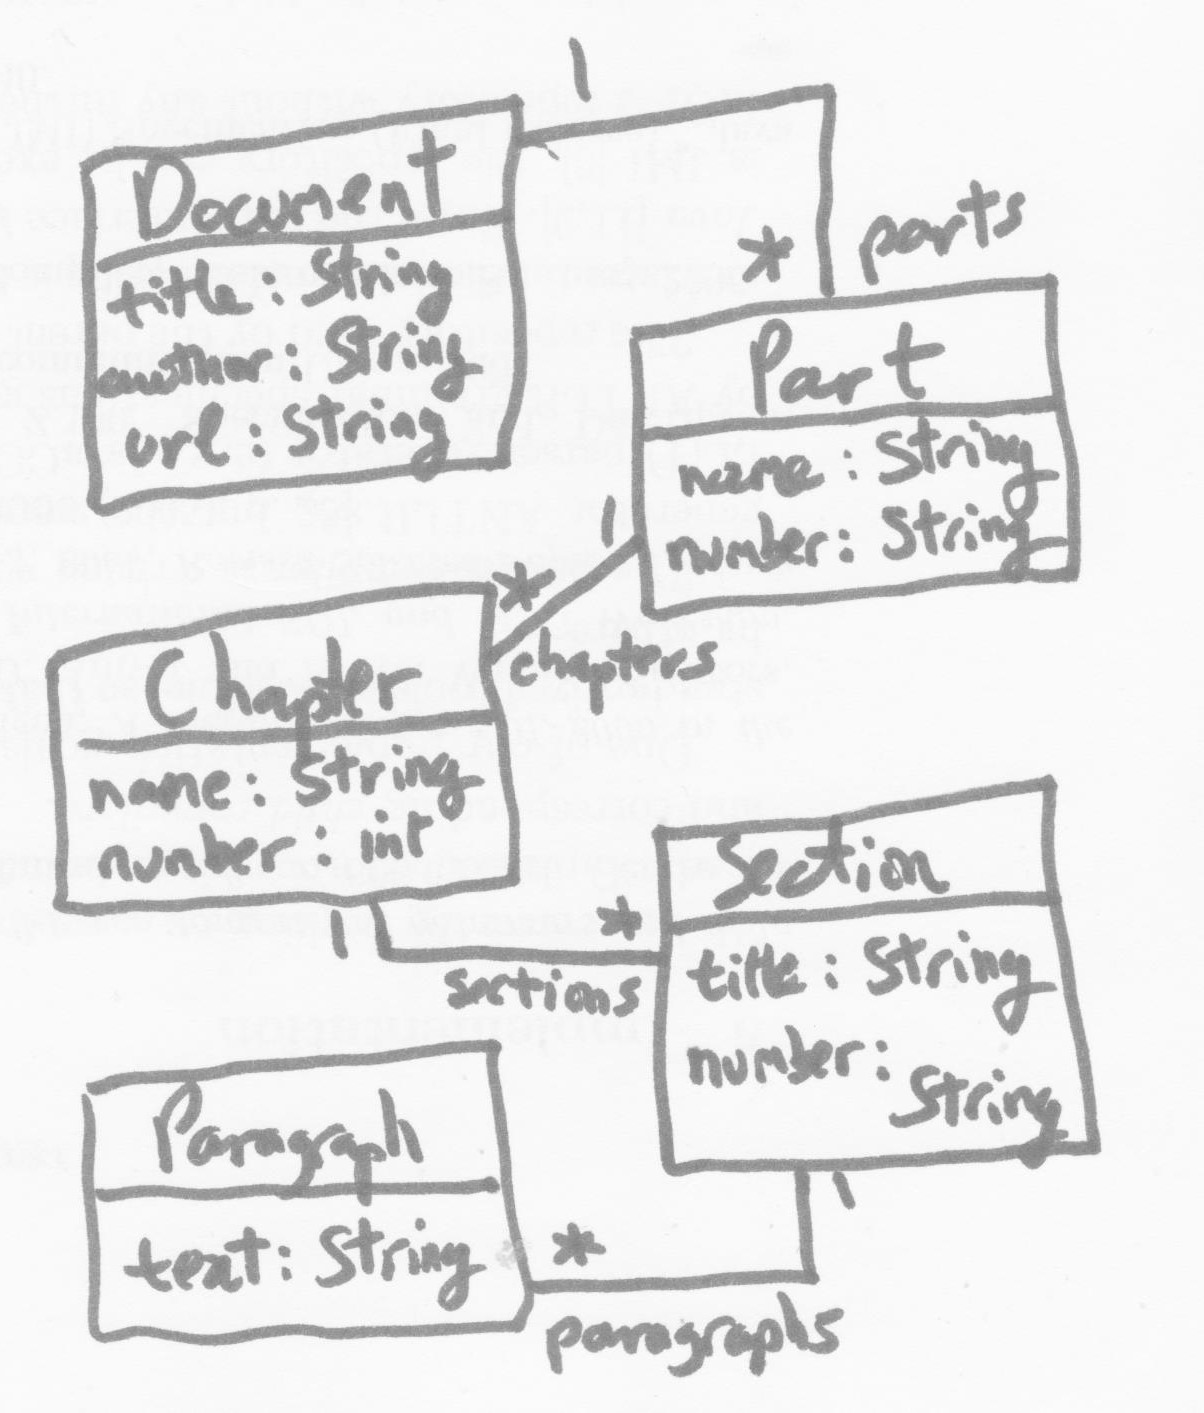 1
Document
title: String
author: String
url: String
* parts
Part
name: String
number: String
1
*
chapters
Chapter
name: String
number: int
1
*
sections
Section
title: String
number:
String
1
Paragraph
text: String
*
paragraphs